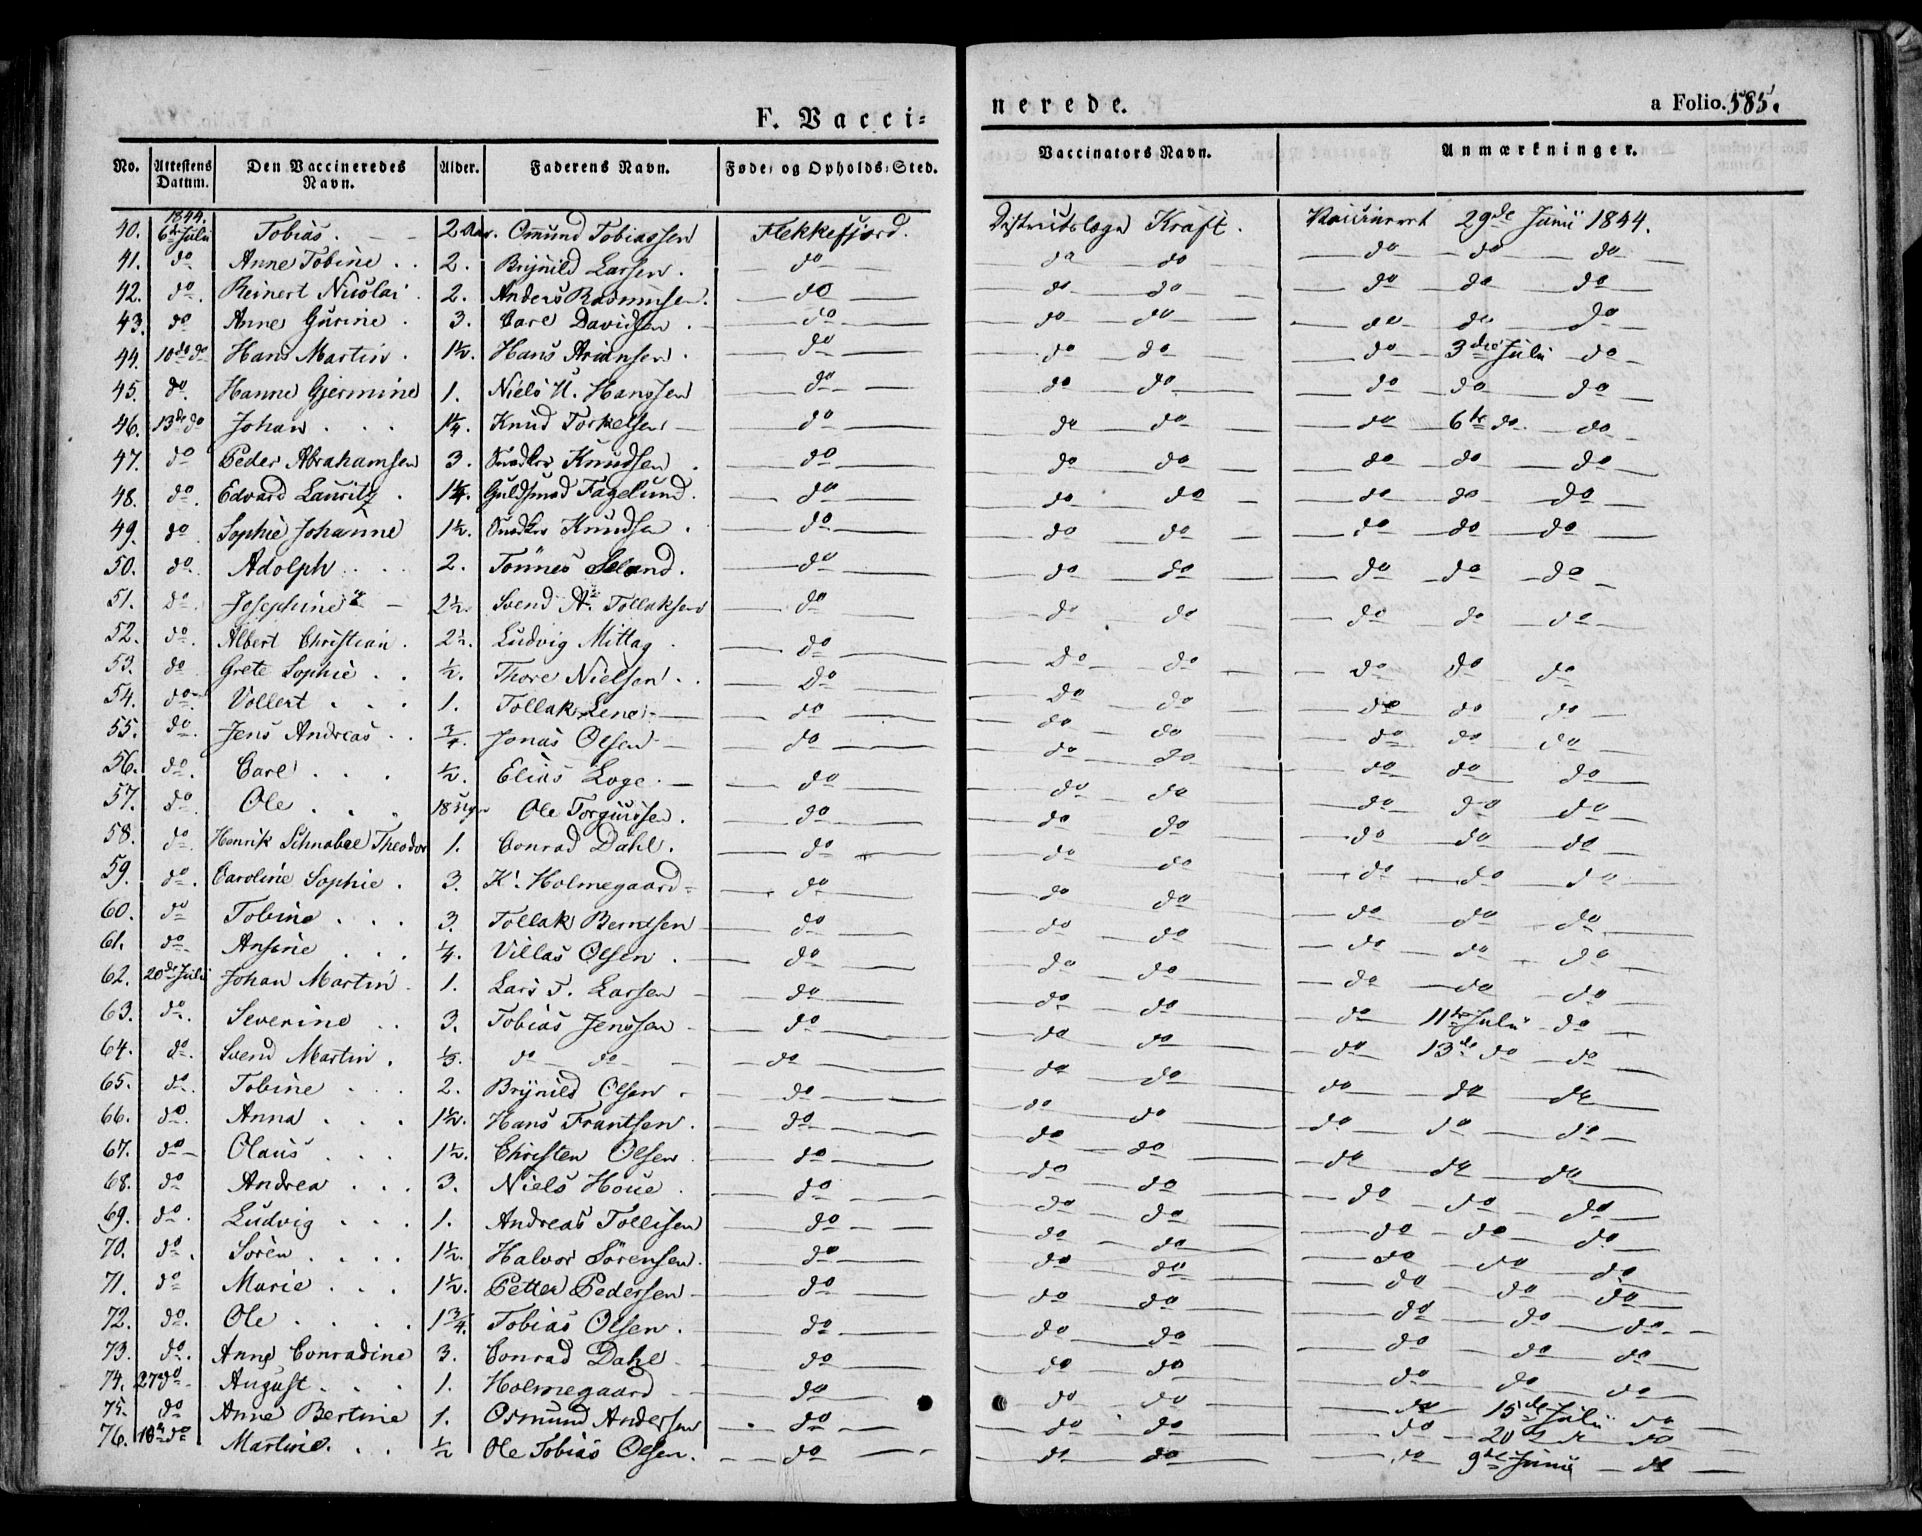 F. Vacci=
nerede. a Folio. 585.
No. Attestens Datum. Den Vaccineredes Navn. Alder. Faderens Navn. Føde= og Opholds=Sted. Vaccinators Navn. Anmærkninger.
1844.
40. 6te Juli Tobias. 2 Aar. Omund Tobiassen Flekkefjord. Districtslæge Kraft. Vaccineret 29de Junii 1844.
41. do Anne Tobine . . 2. Brynild Larsen. do do do do do do
42. do. Reinert Nicolai 2. Anders Rasmusen. do do do do do do
43. do Anne Gurine . 3. Carl Davidsen . do do do do do do
44. 10de do Hans Martin . 1½. Hans Ariansen . do do do do 3die Juli do
45. do. Hanne Gjermine 1. Niels H. Hanssen do do do do do do
46. 13de do Johan . . . 1¼. Knud Torkelsen do do do do 6te do. do
47. do Peder Abrahamsen 3. Snedker Knudsen . do do do do do do
48. do. Edvard Lauritz . 1¼. Guldsmed Fagelund. do do do do do do
49. do Sophie Johanne 1½. Snedker Knudsen . do do do do do do
50. do. Adolph . . . 2. Tönnes Seland. do do do do do do
51. do. Josephine 2½. Svend A. Tollaksen do do do do do do
52. do. Albert Christian . 2½. Ludvig Mittag . do do do do do do
53. do Grete Sophie . . ½. Thore Nielsen . . do do do do do do
54. do Vollert . . . 1. Tollak Lene do do do do do do
55. do. Jens Andreas . . ¾. Jonas Olsen do do do do do do
56. do. Carl . . . ½. Elias Loge . do do do do do do
57. do. Ole . . . 18 Uger Ole Torgiussen. do do do do do do
58. do. Henrik Schnabel Theodor 1. Conrad Dahl. do do do do do do
59. do. Caroline Sophie . 3. K. Holmegaard do do do do do do
60. do Tobine . . . 3. Tollak Berntsen do do do do do do
61. do. Ansine . . . ¼. Villas Olsen . do do do do do do
62. 20de Juli Johan Martin . 1. Lars T. Larsen do do do do do do
63. do. Severine . . 3. Tobias Jenssen do do do do 11te Julii do
64. do. Svend Martin . ⅓. do do do do do do 13de do do
65. do. Tobine . . . 2. Brynild Olsen . do do do do do do
66. do Anna . . . 1½. Hans Frantsen . do do do do do do
67. do Olaus . . . 1½. Christen Olsen do do do do do do
68. do Andrea . . . 3. Niels Houe . do do do do do do
69. do. Ludvig . . . 1. Andreas Tollisen do do do do do do
70. do. Sören . . . . 1½. Halvor Sörensen. do do do do do do
71. do Marie . . . 1½. Petter Pedersen do do do do do do
72. do. Ole . . . . 1¾. Tobias Olsen . do do do do do do
73. do. Anne Conradine 3. Conrad Dahl do do do do do do
74. 27 do August . . . 1. Holmegaard do do do do do do
75. do Anne Bertine 1. Osmund Andersen do do do do 15de Julii do
76. 18de do Martine . . . ½ Ole Tobias Olsen. do do do do 20de do
do 9de Junii do